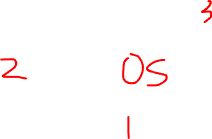 3
2 OS
1